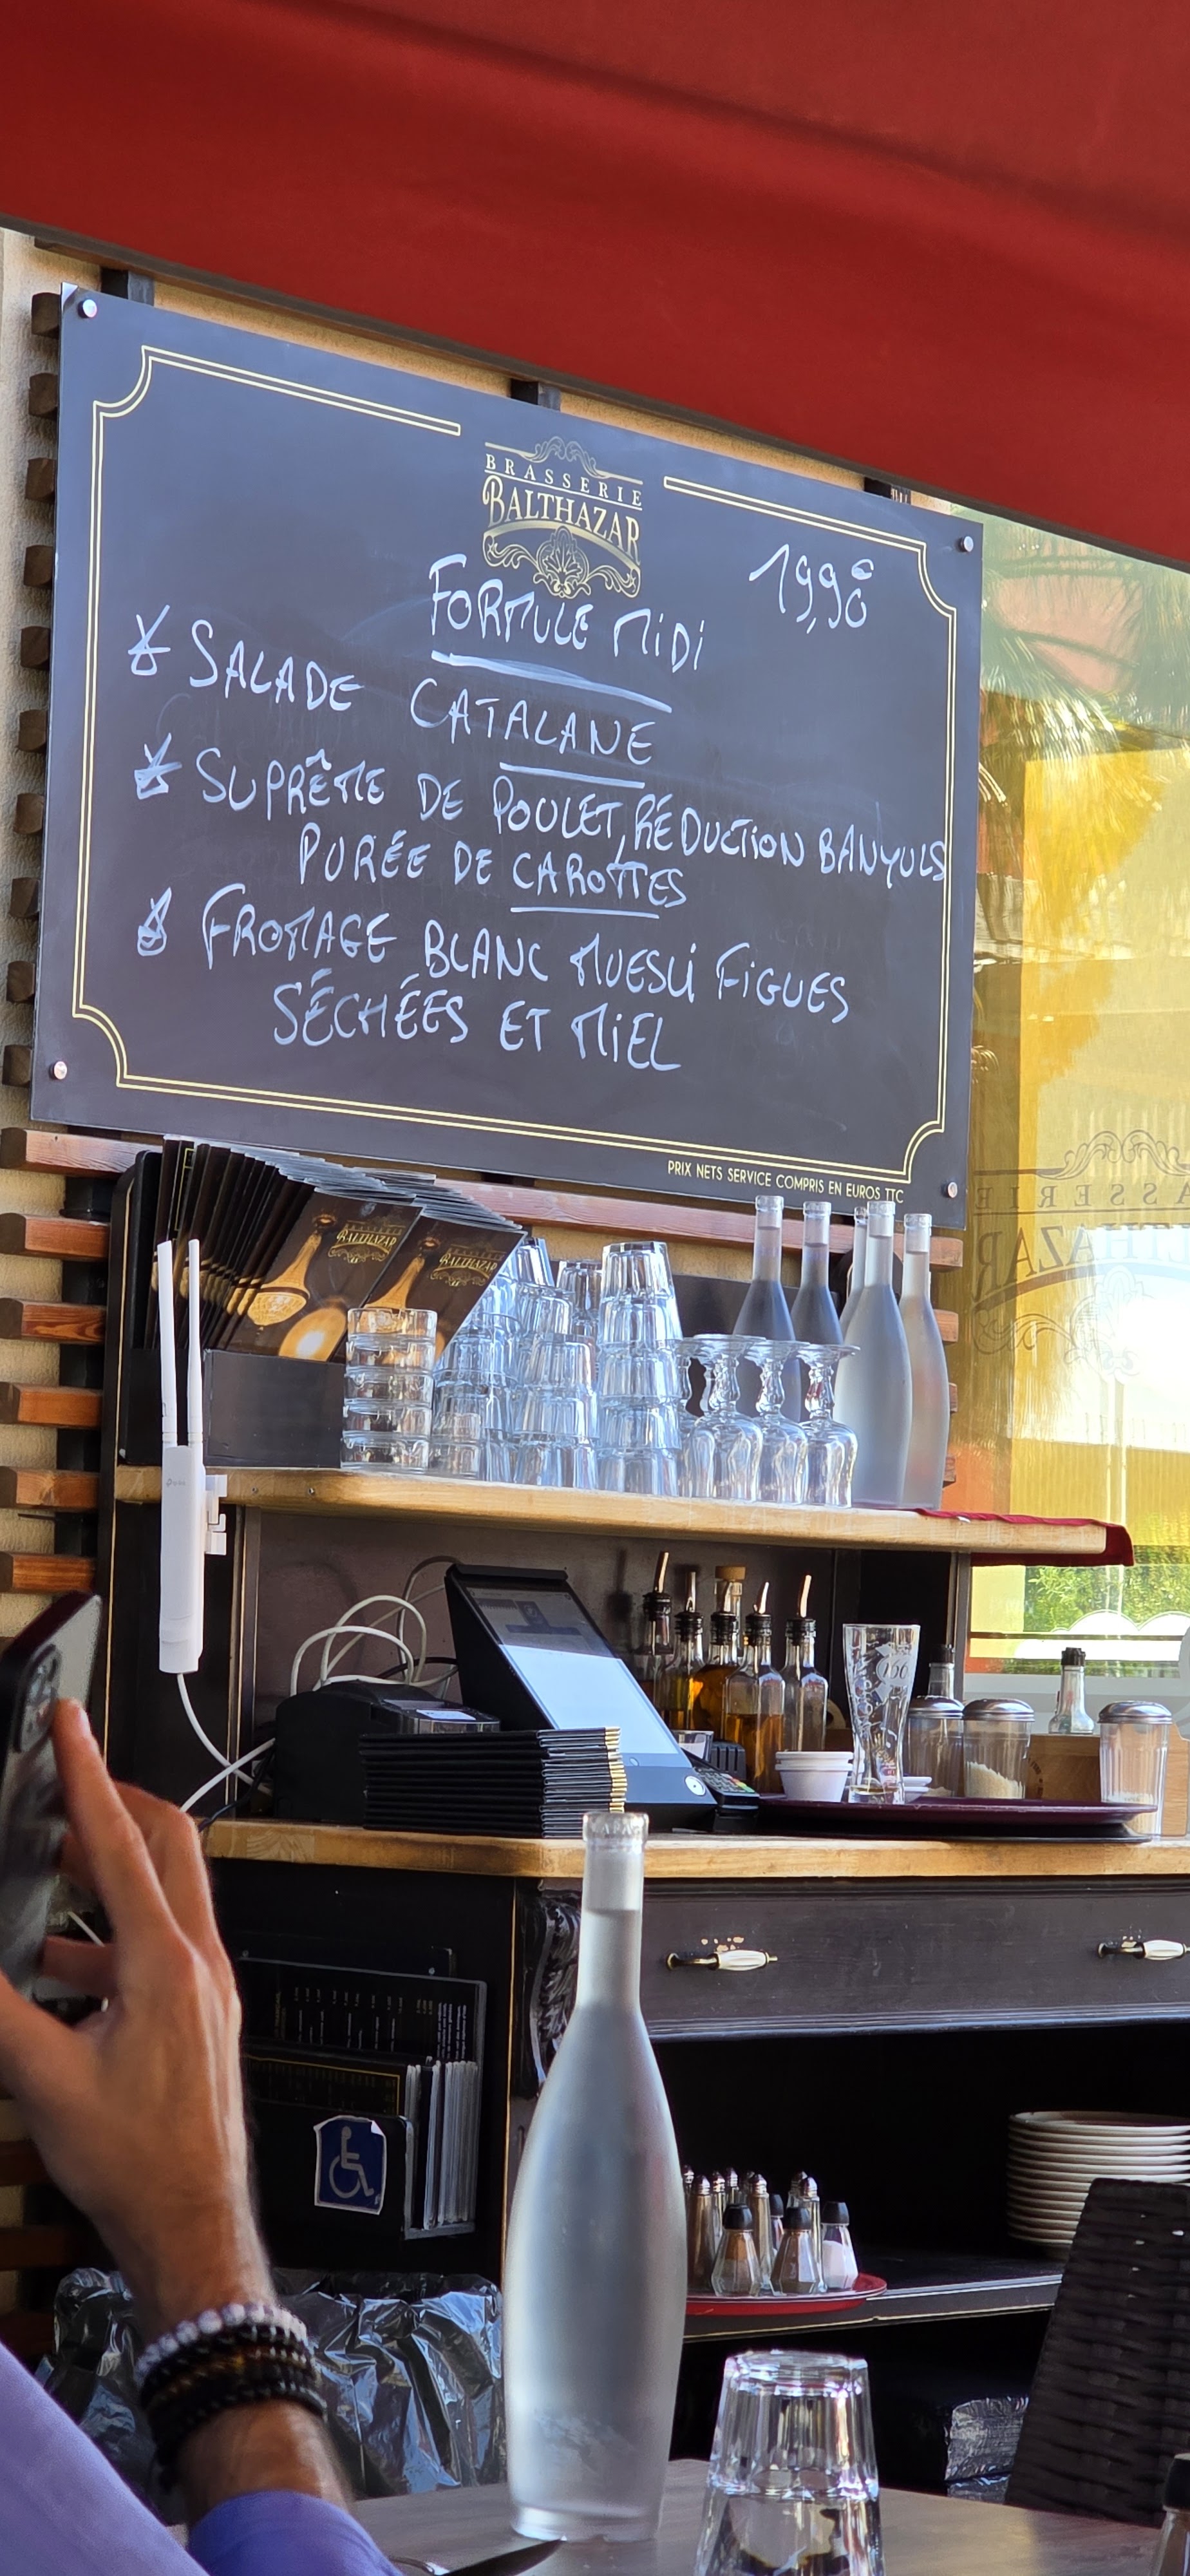 BRASSERIE
BALTHAZAR
19,90
FORMULE MIDI
SALADE CATALANE
SUPRÊME DE POULET, RÉDUCTION BANYULS
PURÉE DE CAROTTES
FROMAGE BLANC MUESLI FIGUES
SÉCHÉES ET MIEL
PRIX NETS SERVICE COMPRIS EN EUROS TTC
BRASSERIE
BALTHAZAR
BRASSERIE
BALTHAZAR